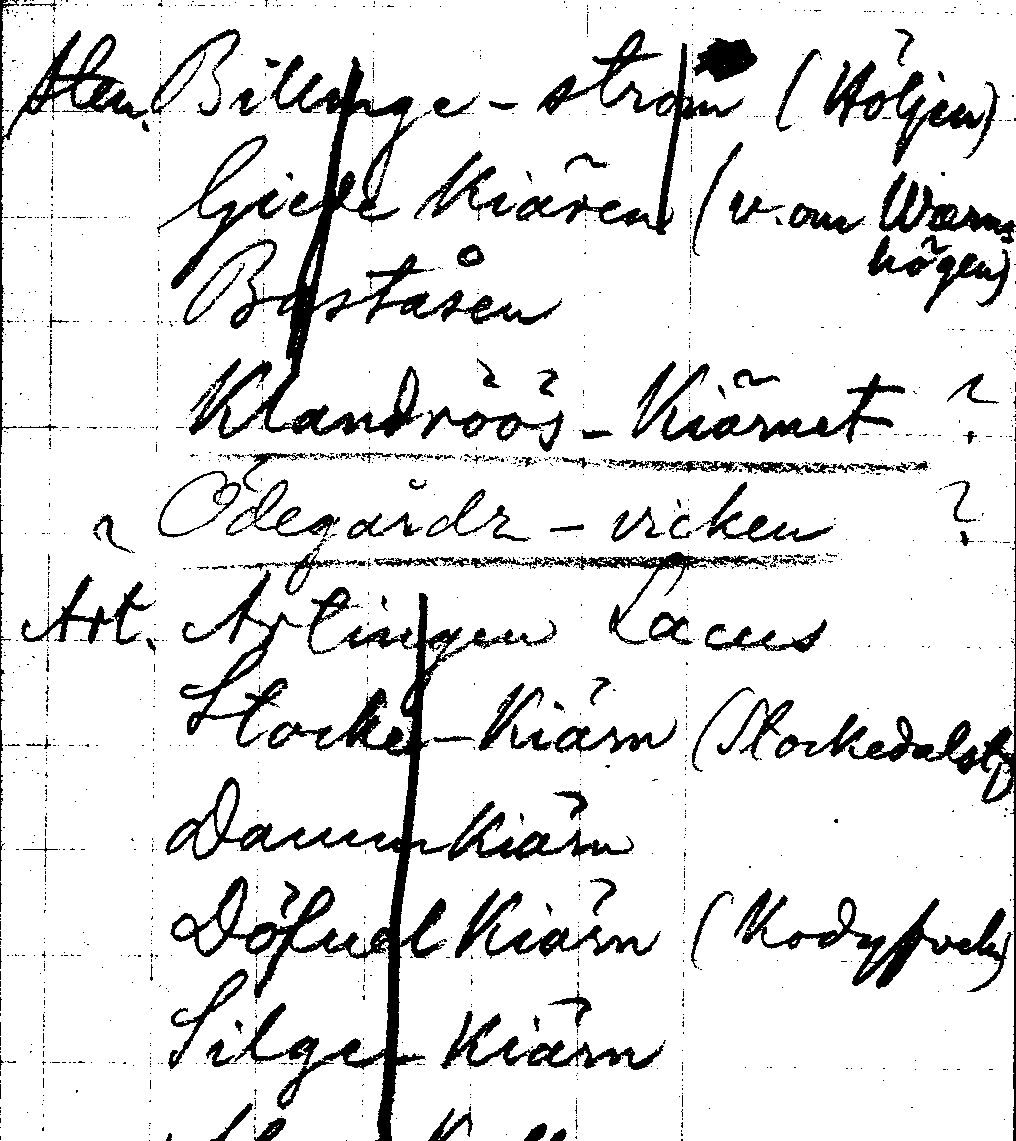 Sten. Billinge - ström (Höljen)
Giede Kiären (v. om Wärns
högen)
Baståsen
Klandröös - Kiärnet ?
Ödegårdz - vicken ?
Art. Artingen Lacus
Stocke - Kiärn (Stockedalstj
Damm Kiärn
Döfuel Kiärn
Silge - Kiärn